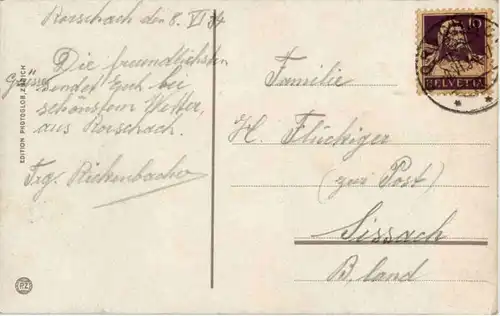 Rorschach den 8. VI 34
Die freundlichsten
Grüsse sendet Euch bei
schönstem Wetter,
aus Rorschach.
Frz. Rickenbacher
EDITION PHOTOGLOB, ZÜRICH
PZ
10
HELVETIA
Familie
H. Flückiger
(zur Post)
Sissach
B. land